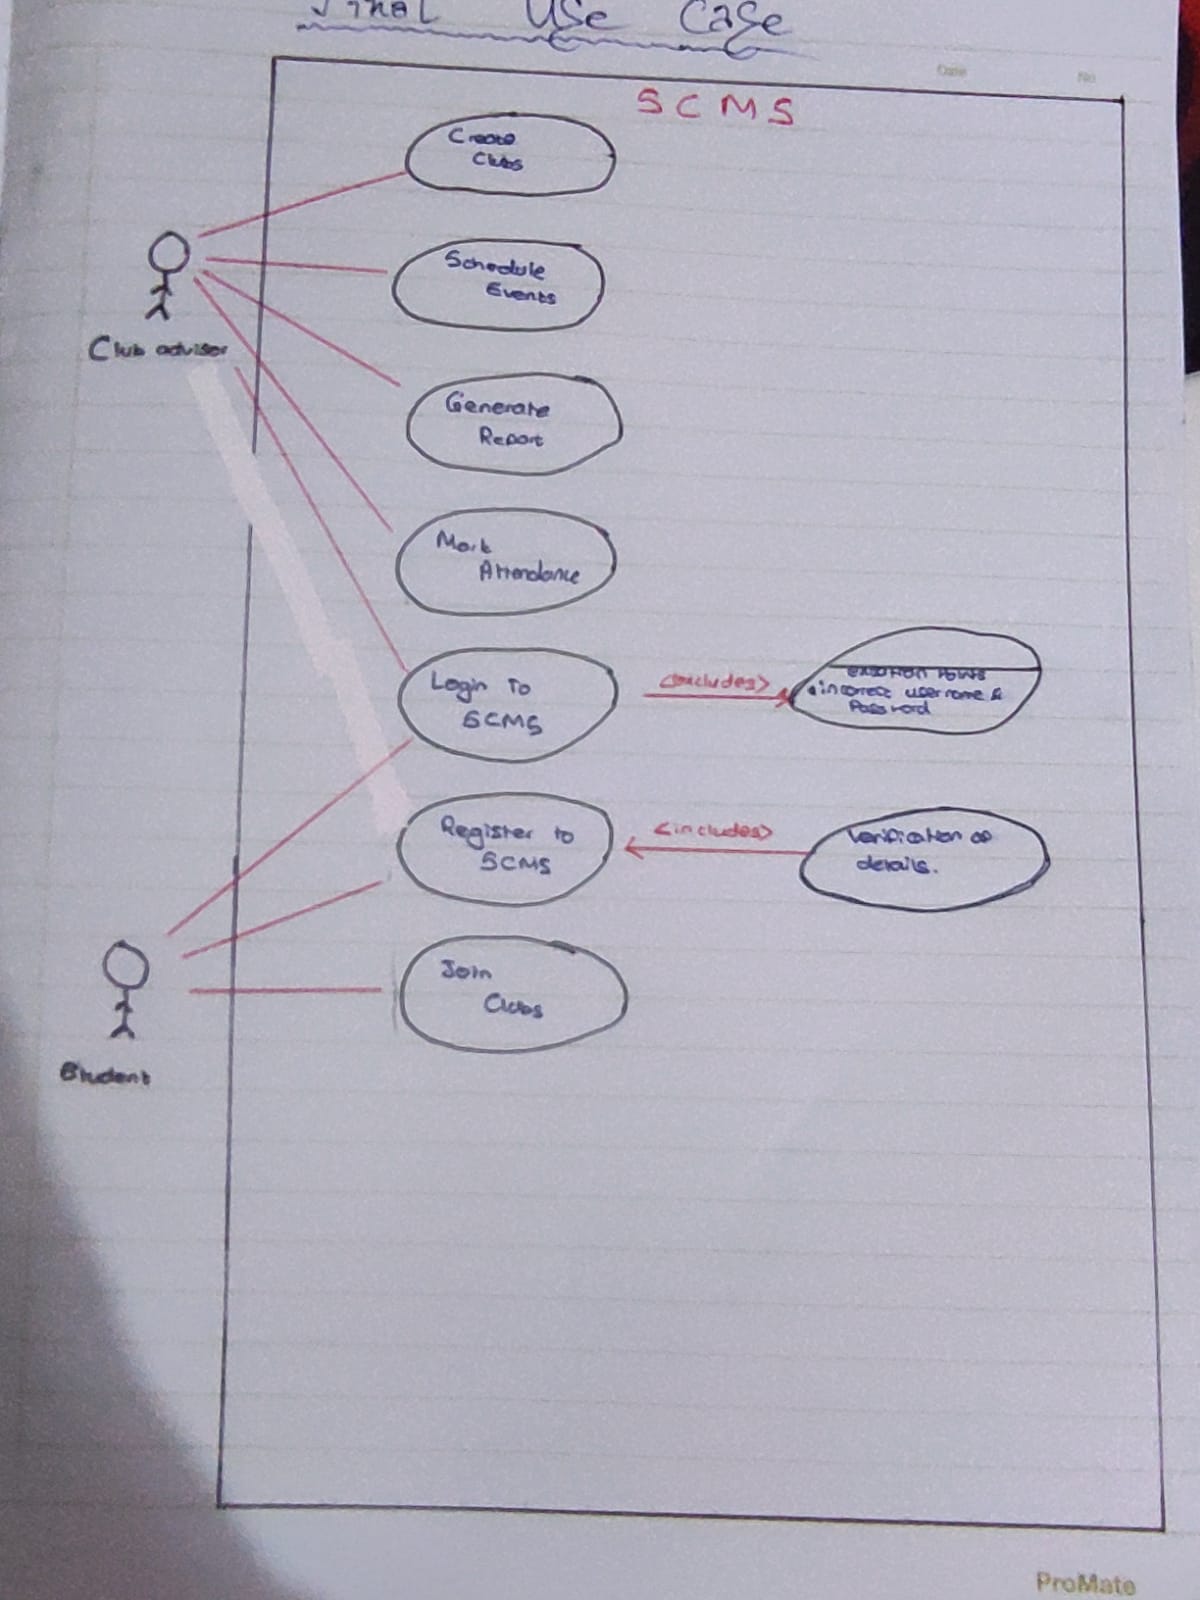 Final Use Case
Date No
SCMS
Create
Clubs
Schedule
Events
Club advisor
Generate
Report
Mark
Attendance
Login To
SCMS
<excludes>
Points
• incorrect username &
Password
Register to
SCMS
<includes>
Verification of
details.
Join
Clubs
Student
ProMate